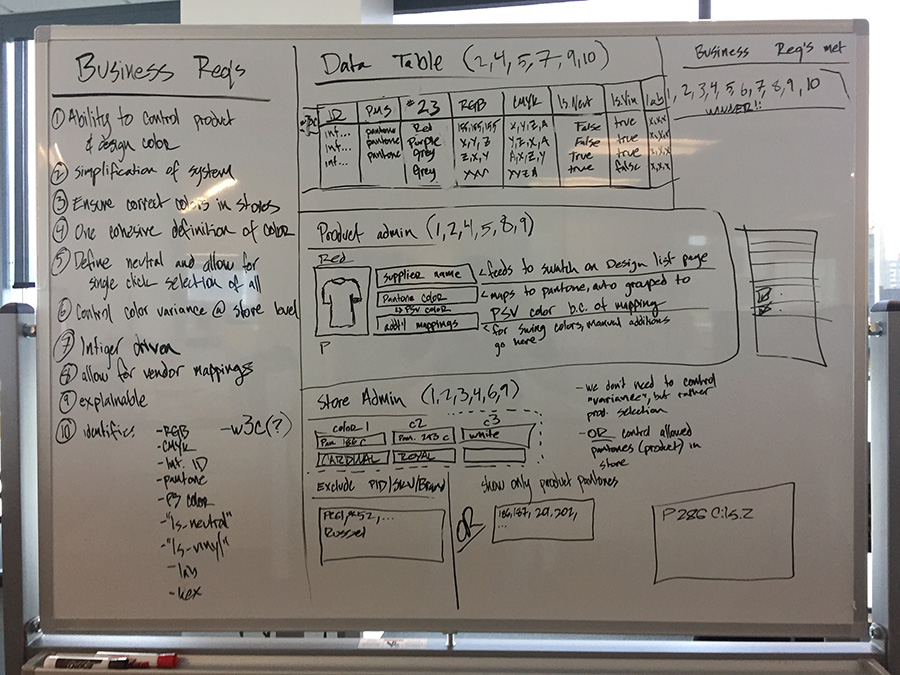 Business Req's
① Ability to control product
& design color
② simplification of system
③ Ensure correct colors in stores
④ One cohesive definition of color
⑤ Define neutral and allow for
single click selection of all
⑥ Control color variance @ store level
⑦ Intiger driven
⑧ allow for vendor mappings
⑨ explainable
⑩ identifies:
-RGB
-CMYK
-Int. ID
-pantone
-PS color
-"Is-neutral"
-"Is-vinyl"
-lab
-hex
-w3c(?)
Data Table (2,4,5,7,9,10)
ID PMS #23 RGB CMYK Is.Neut Is.Vin lab
int... pantone Red 155,155,155 X,Y,Z,A False true x,x,x
int... pantone Purple X,Y,Z Y,Z,X,A False true x,x,x
int... pantone Grey Z,X,Y A,X,Z,Y true true x,x,x
Grey true false x,x,x
Product admin (1,2,4,5,8,9)
Red
P
supplier name
Pantone color
↳ PSV color
add'l mappings
feeds to swatch on Design list page
maps to pantone, auto grouped to
PSV color b.c. of mapping
for swing colors, manual additions
go here
Store Admin (1,2,3,4,6,9)
color 1 c2 c3
Pan. 186 c Pan. 283 c white
CARDINAL ROYAL
Exclude PID/SKU/Brand
PC61, PC52, ...
Russel
OR
show only product pantones
186,187, 201,202,
...
- we don't need to control
"variance", but rather
prod. selection
- OR control allowed
pantones (product) in
store
P 286 C:
Business Req's met
1, 2, 3, 4, 5, 6, 7, 8, 9, 10
WINNER!!